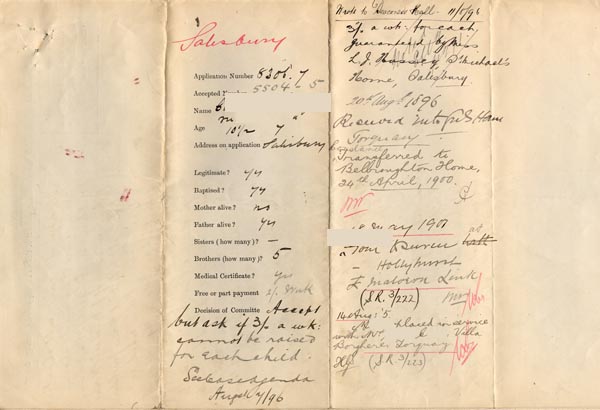 Salisbury
Application Number 8306. 7
Accepted Number 5504 - 5
Name
Age 10½ 7
Address on application Salisbury
Legitimate? yes
Baptised? yes
Mother alive? no
Father alive? yes
Sisters (how many)? –
Brothers (how many)? 5
Medical Certificate? yes
Free or part payment 2/. Week
Decision of Committee Accept
but ask if 3/. a wk:
cannot be raised
for each child.
See Case agenda
Augst 7/96
Wrote to 11/8/96
3/. a wk: for each,
guaranteed by Miss
L. J. Hussey, St Michael's
Home, Salisbury
20th Augt 1896
Received into Home
Torquay
Transferred to
Belbroughton Home,
24th April, 1900.
1901
– Hollyhurst
Link
(S.R. 3/222)
14 Aug: '5
placed in service
Villa
Borghese Torquay
(S.R. 3/223)